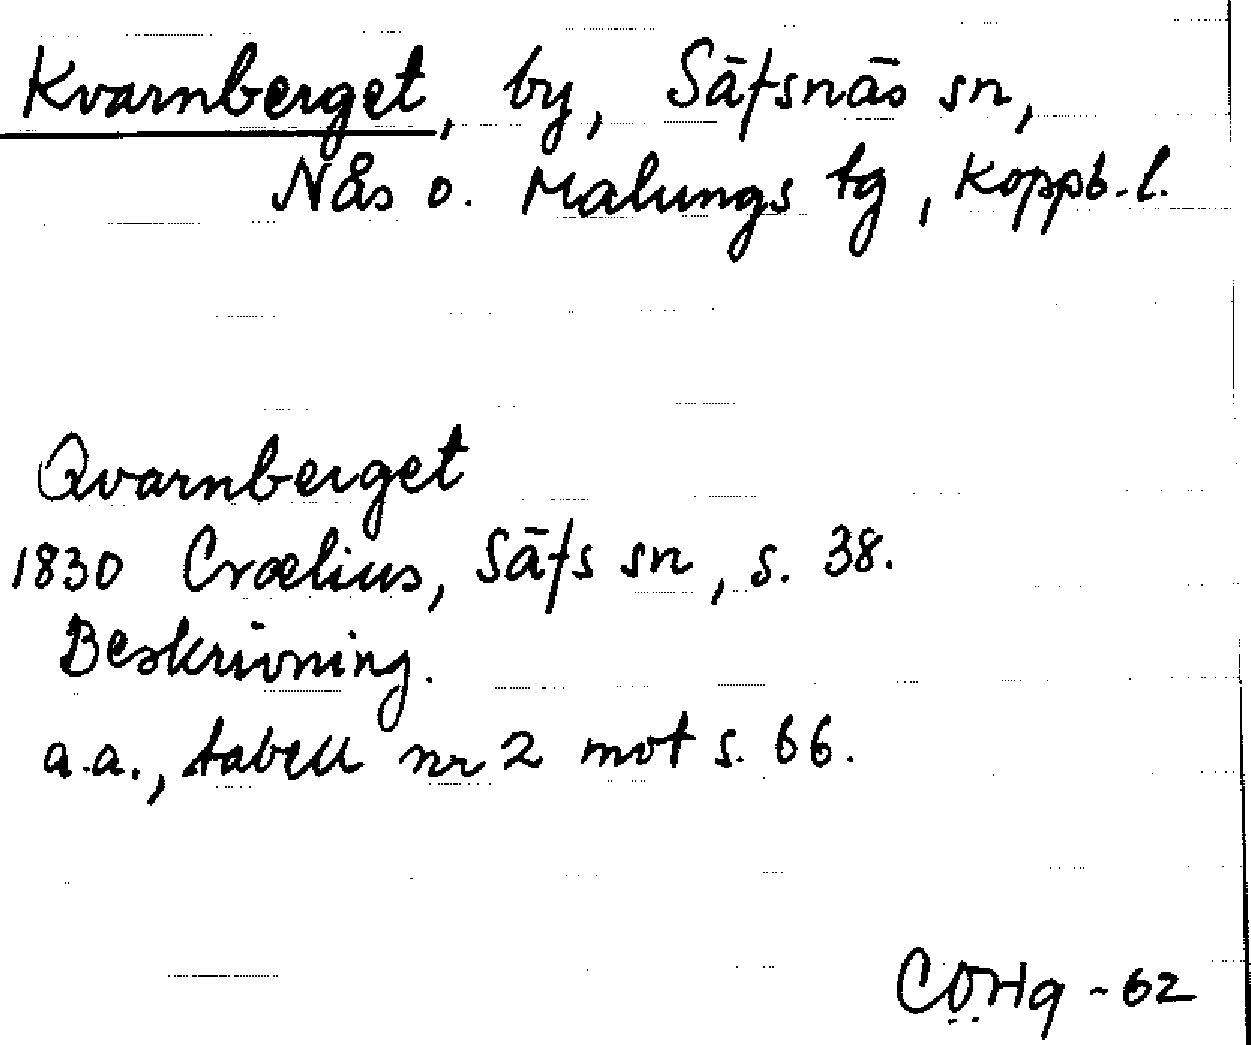 Kvarnberget, by, Säfsnäs sn,
Nås o. Malungs tg, Koppb.l.
Qvarnberget
1830 Crælius, Säfs sn, s. 38.
Beskrivning.
a.a., tabell nr 2 mot s. 66.
-62